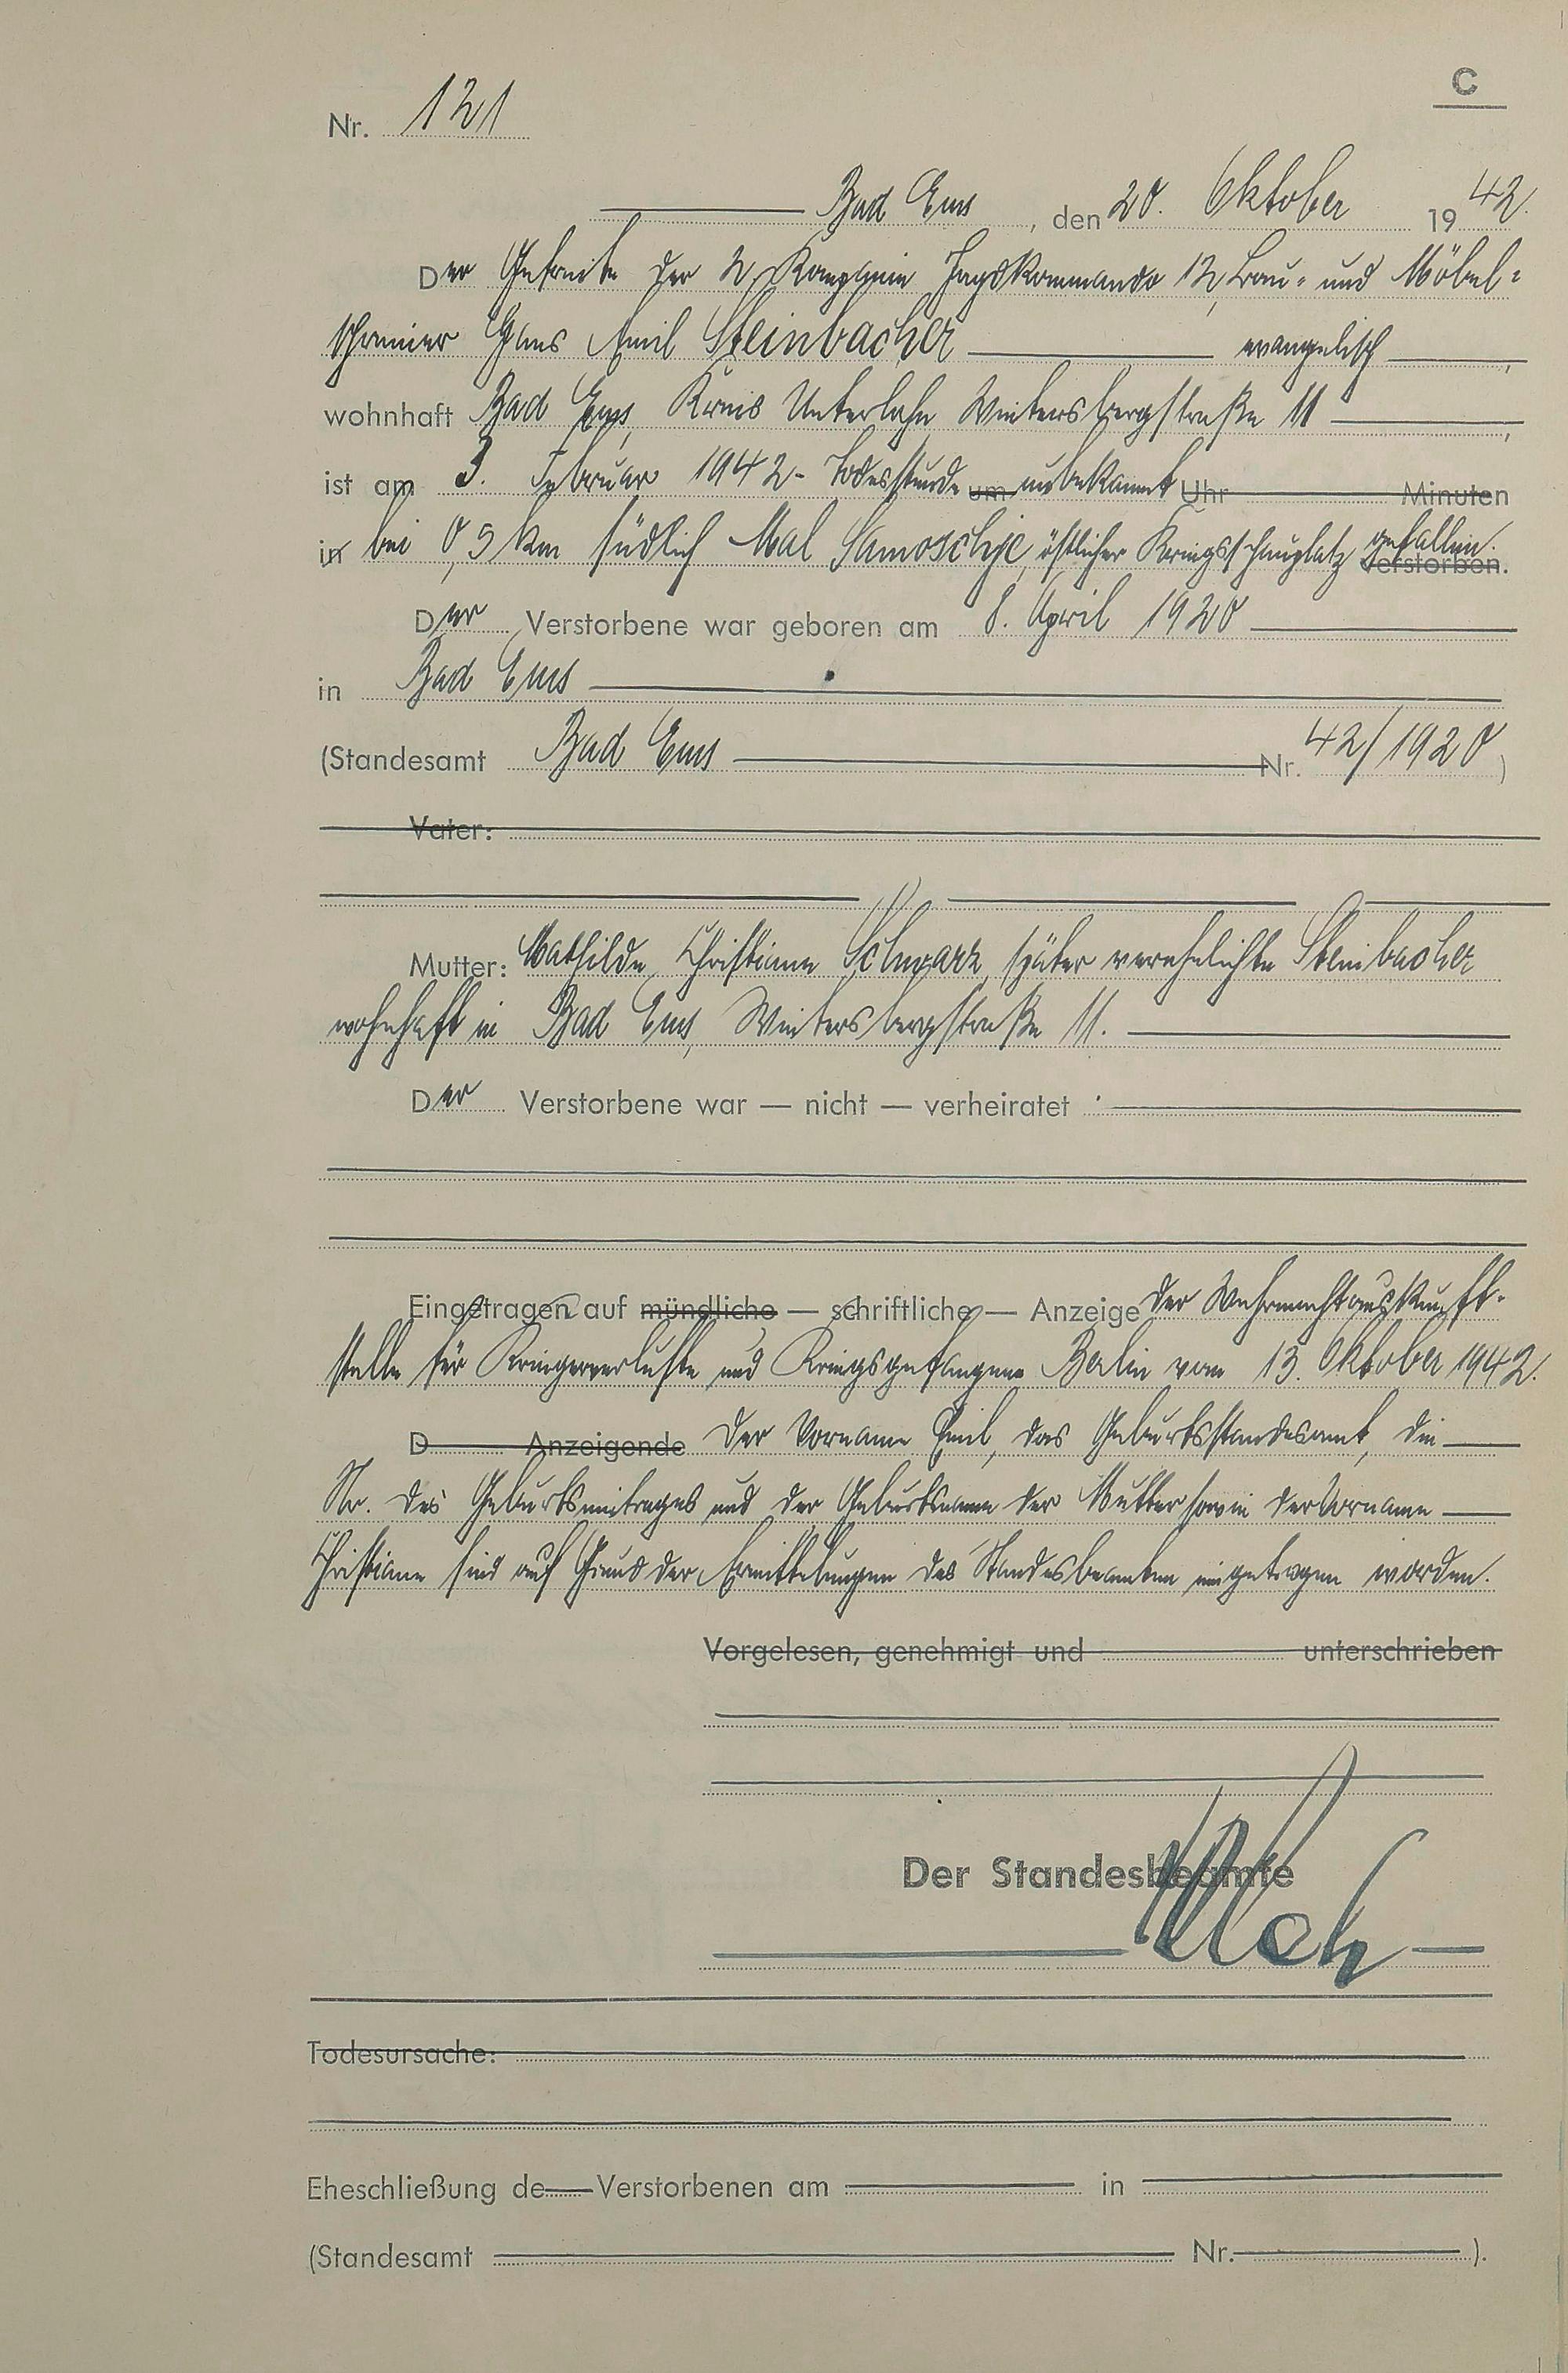 C
Nr. 121
Bad Ems, den 20. Oktober 1942.
Der Gefreite der 2. Kompanie Jagdkommando 12, Bau- und Möbel-
schreiner Hans Emil Steinbacher evangelisch,
wohnhaft Bad Ems, Kreis Unterlahn, Wintersbergstraße 11,
ist am 3. Februar 1942 - Todesstunde um unbekannt Uhr Minuten
in bei 0,5 km südlich Mal Samoschje, östlicher Kriegsschauplatz gefallen. verstorben.
Der Verstorbene war geboren am 8. April 1920
in Bad Ems
(Standesamt Bad Ems Nr. 42/1920)
Vater:
Mutter: Mathilde, Christiane Schwarz, später verehelichte Steinbacher
wohnhaft in Bad Ems, Wintersbergstraße 11.
Der Verstorbene war — nicht — verheiratet.
Eingetragen auf mündliche — schriftliche — Anzeige der Wehrmachtauskunft-
stelle für Kriegerverluste und Kriegsgefangene Berlin vom 13. Oktober 1942.
D Anzeigende Der Vorname Emil, das Geburtsstandesamt, die
Nr. des Geburtseintrages und der Geburtsname der Mutter sowie der Vorname
Christiane sind auf Grund der Ermittelungen des Standesbeamten eingetragen worden.
Vorgelesen, genehmigt und unterschrieben
Der Standesbeamte
Todesursache:
Eheschließung de Verstorbenen am in
(Standesamt Nr. ).